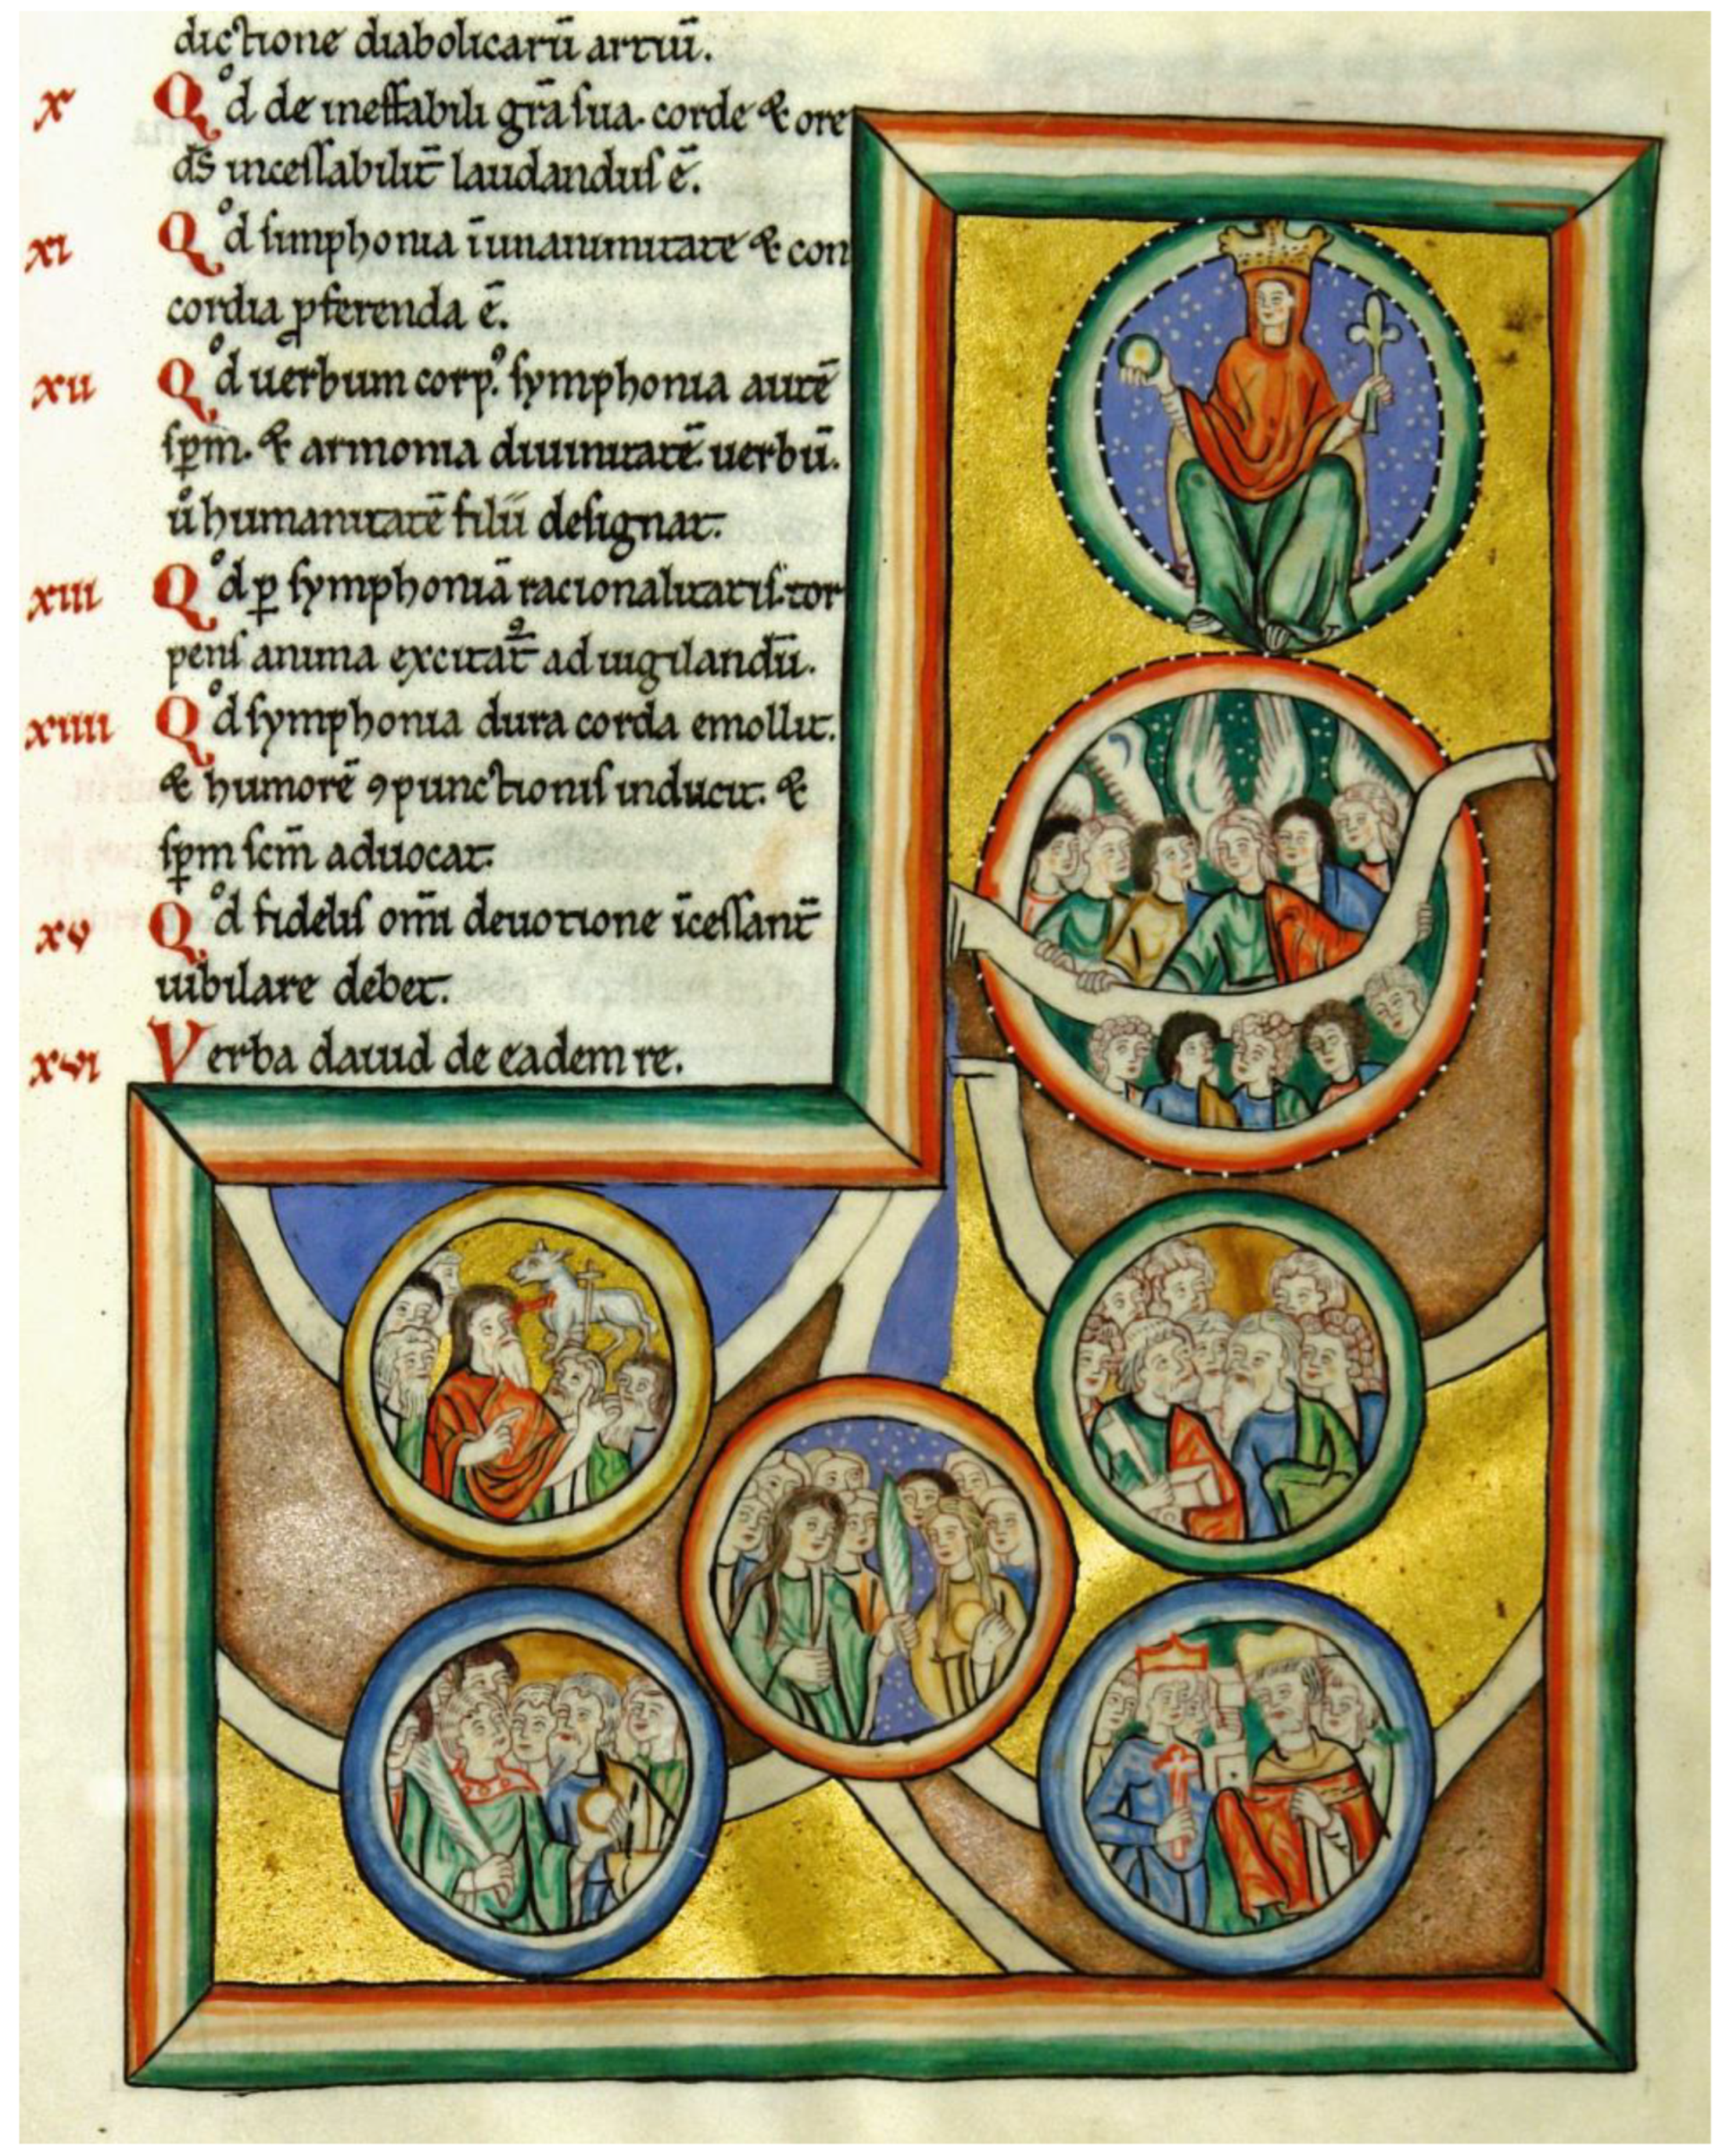 dictione diabolicarū artiū.
x Qͦd de ineffabili gr̄a sua. corde & ore
ds̄ incessabilit̄ laudandus ē.
xi Qͦd simphonia ī unanimitate & con
cordia p̱ferenda ē.
xii Qͦd uerbum corpꝰ. symphonia autē
sp̄m. & armonia diuinitatē. uerbū.
uͦ humanitatē filii designat.
xiii Qͦd ꝑ symphoniā racionalitatis. tor
pens anima excitat̄ᷣ ad uigilandū.
xiiii Qͦd symphonia dura corda emollit.
& humorē ꝯpunctionis inducit. &
sp̄m scm̄ aduocat.
xv Qͦd fidelis om̄i deuotione īcessant̄
iubilare debet.
xvi Verba dauid de eadem re.